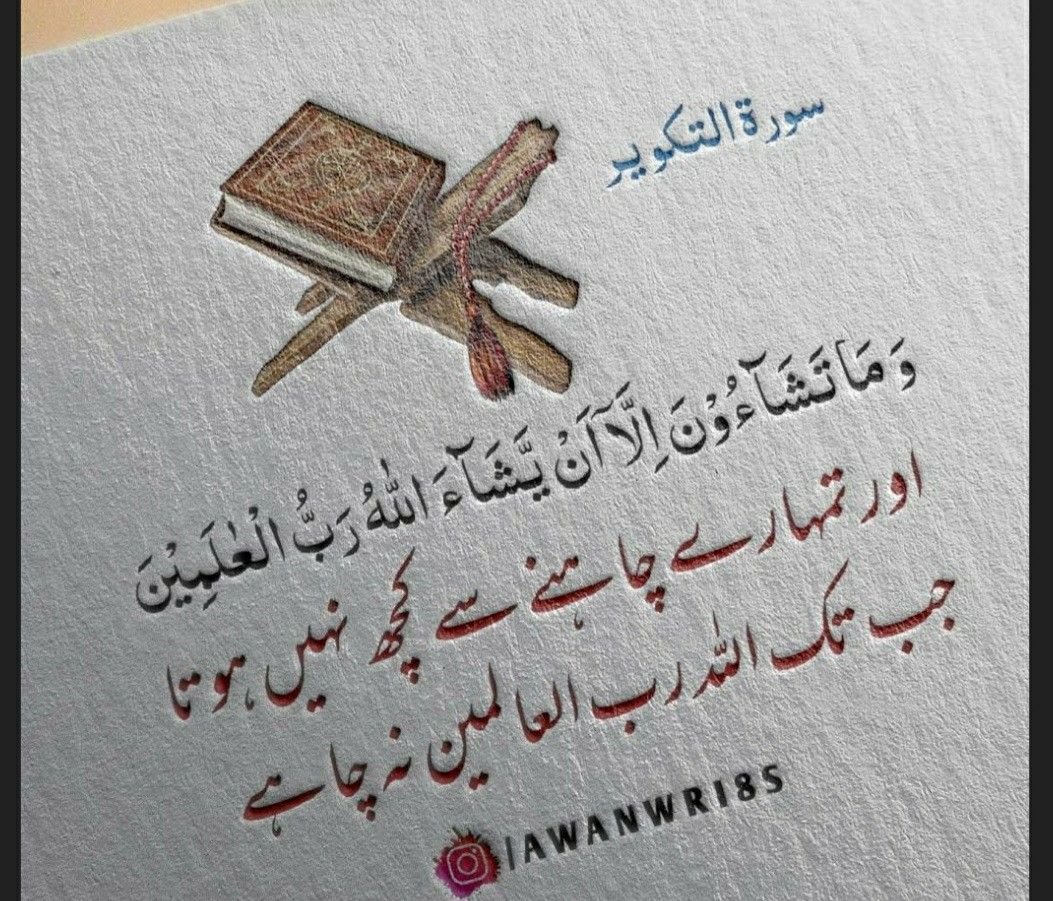 سورة التكوير
وَمَا تَشَآءُوْنَ اِلَّاۤ اَنْ يَّشَآءَ اللّٰهُ رَبُّ الْعٰلَمِيْنَ
اور تمہارے چاہنے سے کچھ نہیں ہوتا
جب تک اللہ رب العالمین نہ چاہے
|AWANWRI8S